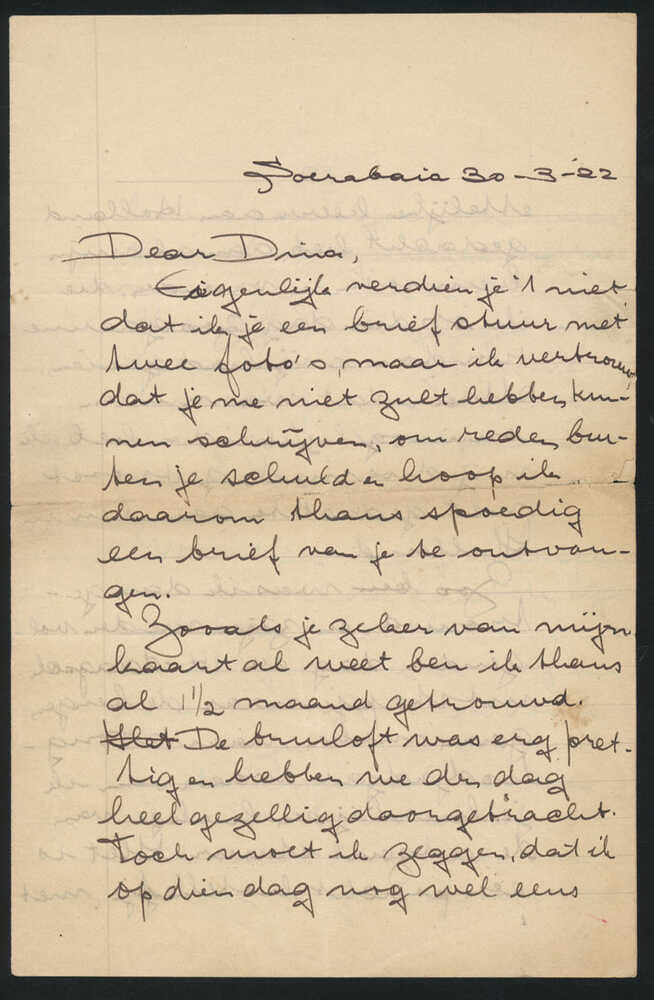 Soerabaia 30-3-'22
Dear Dina,
Eigenlijk verdien je 't niet
dat ik je een brief stuur met
twee foto's, maar ik vertrouw,
dat je me niet zult hebben kun-
nen schrijven, om reden bui-
ten je schuld en hoop ik
daarom thans spoedig
een brief van je te ontvan-
gen.
Zooals je zeker van mijn
kaart al weet ben ik thans
al 1 1/2 maand getrouwd.
Het De bruiloft was erg pret-
tig en hebben we den dag
heel gezellig doorgebracht.
Toch moet ik zeggen, dat ik
op dien dag nog wel eens